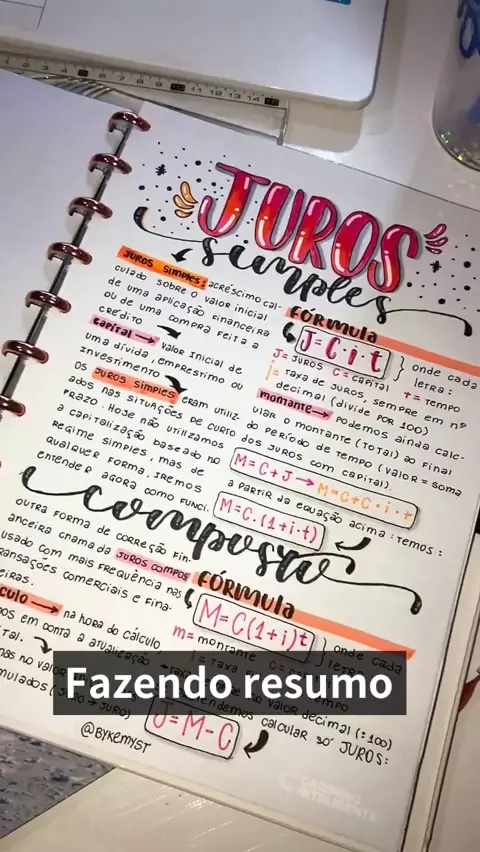 JUROS
simples
JUROS SIMPLES: ACRÉSCIMO CAL-
CULADO SOBRE O VALOR INICIAL
DE UMA APLICAÇÃO FINANCEIRA
OU DE UMA COMPRA FEITA A
CRÉDITO
CAPITAL → VALOR INICIAL DE
UMA DÍVIDA, EMPRÉSTIMO OU
INVESTIMENTO
OS JUROS SIMPLES ERAM UTILIZ
ADOS NAS SITUAÇÕES DE CURTO
PRAZO. HOJE NÃO UTILIZAMOS
A CAPITALIZAÇÃO BASEADO NO
REGIME SIMPLES, MAS DE
QUALQUER FORMA, IREMOS
ENTENDER AGORA COMO FUNCI.
FÓRMULA
J=C·i·t
ONDE CADA
LETRA:
J= JUROS C= CAPITAL t= TEMPO
i= TAXA DE JUROS, SEMPRE EM Nº
DECIMAL (DIVIDE POR 100)
MONTANTE → PODEMOS AINDA CALC-
ULAR O MONTANTE (TOTAL) AO FINAL
DO PERÍODO DE TEMPO (VALOR = SOMA
DOS JUROS COM CAPITAL).
M=C+J → M=C+C·i·t
A PARTIR DA EQUAÇÃO ACIMA: TEMOS:
M=C·(1+i·t)
composto
OUTRA FORMA DE CORREÇÃO FIN-
ANCEIRA CHAMADA JUROS COMPOS
USADO COM MAIS FREQUÊNCIA NAS
TRANSAÇÕES COMERCIAIS E FINA-
EIRAS.
CULO → NA HORA DO CÁLCULO,
OS EM CONTA A ATUALIZAÇÃO
TAL.
MAS NO VALOR
MULADOS (JURO → JURO)
FÓRMULA
M=C(1+i)t
ONDE CADA
LETRA
M= MONTANTE
i= TAXA
TEMPO
NO VALOR DECIMAL (÷100)
TENDEMOS CALCULAR SÓ JUROS:
J=M-C
@BYKEMYST
CADERNO
INTELIGENTE
Fazendo resumo